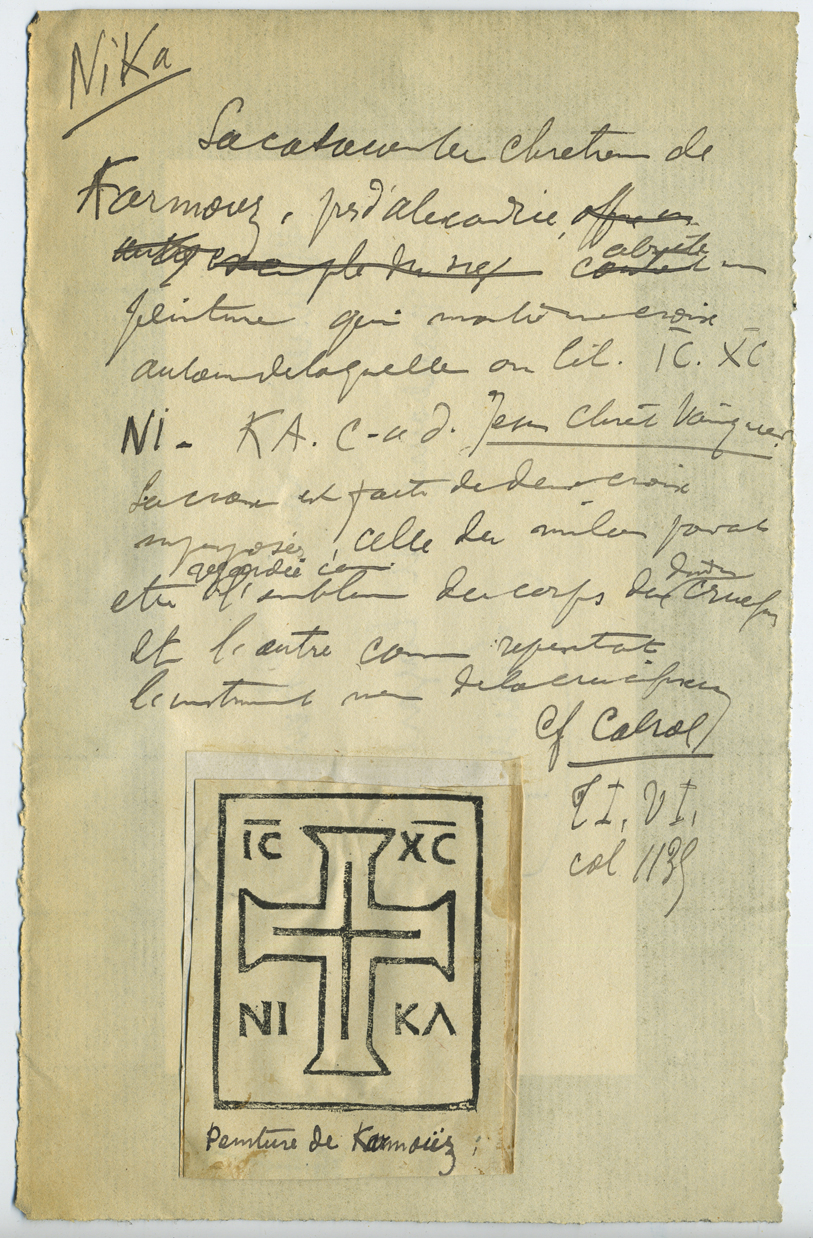 NiKa
La catacombe chretienne de
Karmouz, pres d'alexandrie, offre un
autre exemple du
abrite
une
peinture qui montre une croix
autour de laquelle on lit. IC. XC
Ni - KA. C-a d. Jesus Christ Vainqueur
La croix est faite de deux croix
superposées, celle du milieu parait
regardée
etre l'embleme du corps du divin Crucifié
et l'autre comme representant
l'instrument meme de la crucifixion
Cf Cabrol
T I, V I,
col 1135
IC XC
NI KA
Peinture de Karmoüz